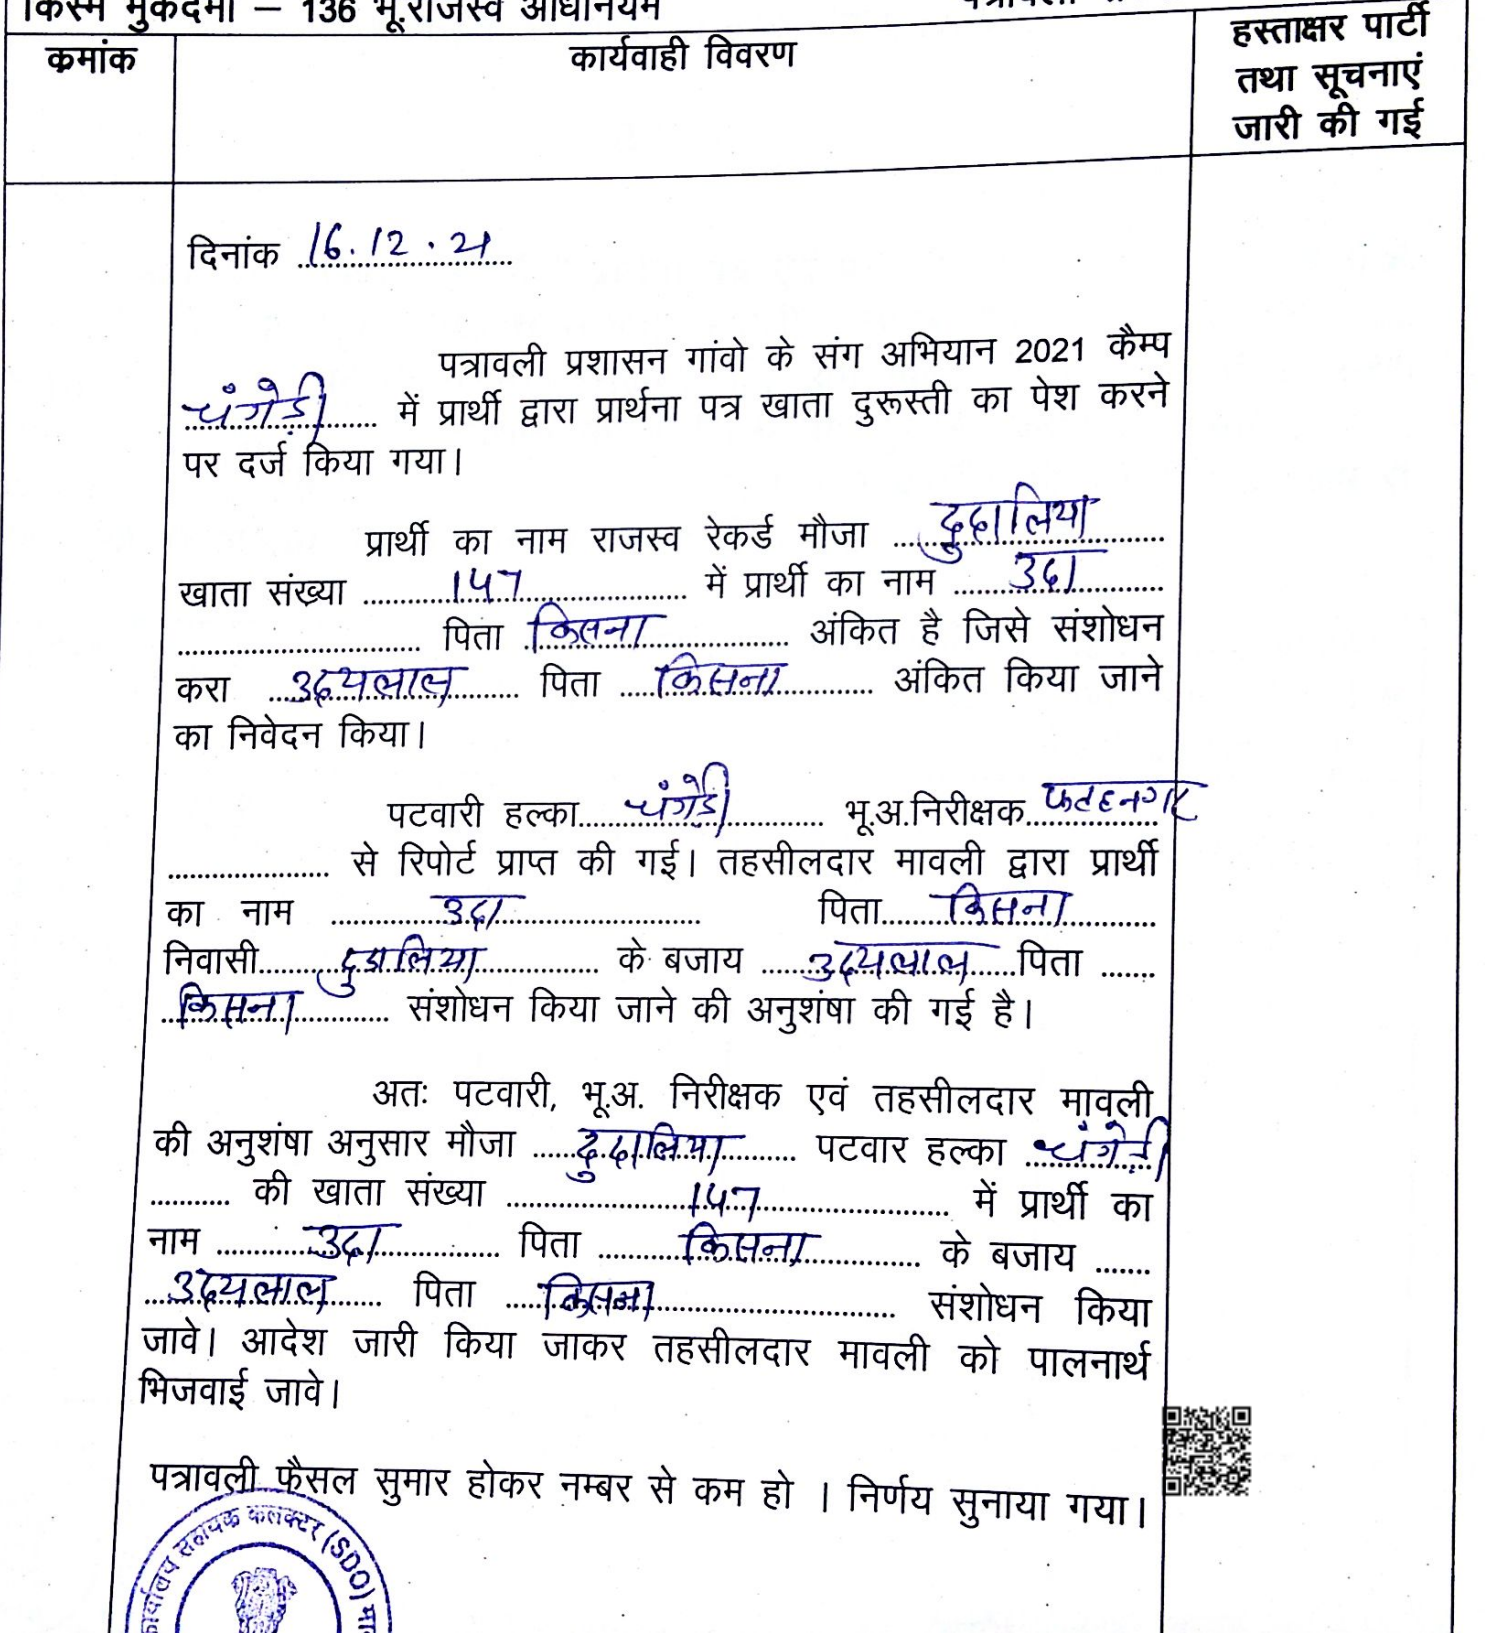 किस्म मुकदमा – 136 भू.राजस्व अधिनियम
क्रमांक
कार्यवाही विवरण
हस्ताक्षर पार्टी
तथा सूचनाएं
जारी की गई
दिनांक 16.12.21
पत्रावली प्रशासन गांवो के संग अभियान 2021 कैम्प
चंगेड़ी में प्रार्थी द्वारा प्रार्थना पत्र खाता दुरूस्ती का पेश करने
पर दर्ज किया गया।
प्रार्थी का नाम राजस्व रेकर्ड मौजा दुदालिया
खाता संख्या 147 में प्रार्थी का नाम उदा
पिता किसना अंकित है जिसे संशोधन
करा उदयलाल पिता किसना अंकित किया जाने
का निवेदन किया।
पटवारी हल्का चंगेड़ी भू.अ.निरीक्षक फतहनगर
से रिपोर्ट प्राप्त की गई। तहसीलदार मावली द्वारा प्रार्थी
का नाम उदा पिता किसना
निवासी दुडालिया के बजाय उदयलाल पिता
किसना संशोधन किया जाने की अनुशंषा की गई है।
अतः पटवारी, भू.अ. निरीक्षक एवं तहसीलदार मावली
की अनुशंषा अनुसार मौजा दुदालिया पटवार हल्का चंगेड़ी
की खाता संख्या 147 में प्रार्थी का
नाम उदा पिता किसना के बजाय
उदयलाल पिता किसना संशोधन किया
जावे। आदेश जारी किया जाकर तहसीलदार मावली को पालनार्थ
भिजवाई जावे।
पत्रावली फैसल सुमार होकर नम्बर से कम हो । निर्णय सुनाया गया।
कार्यालय सहायक कलक्टर (SDO)